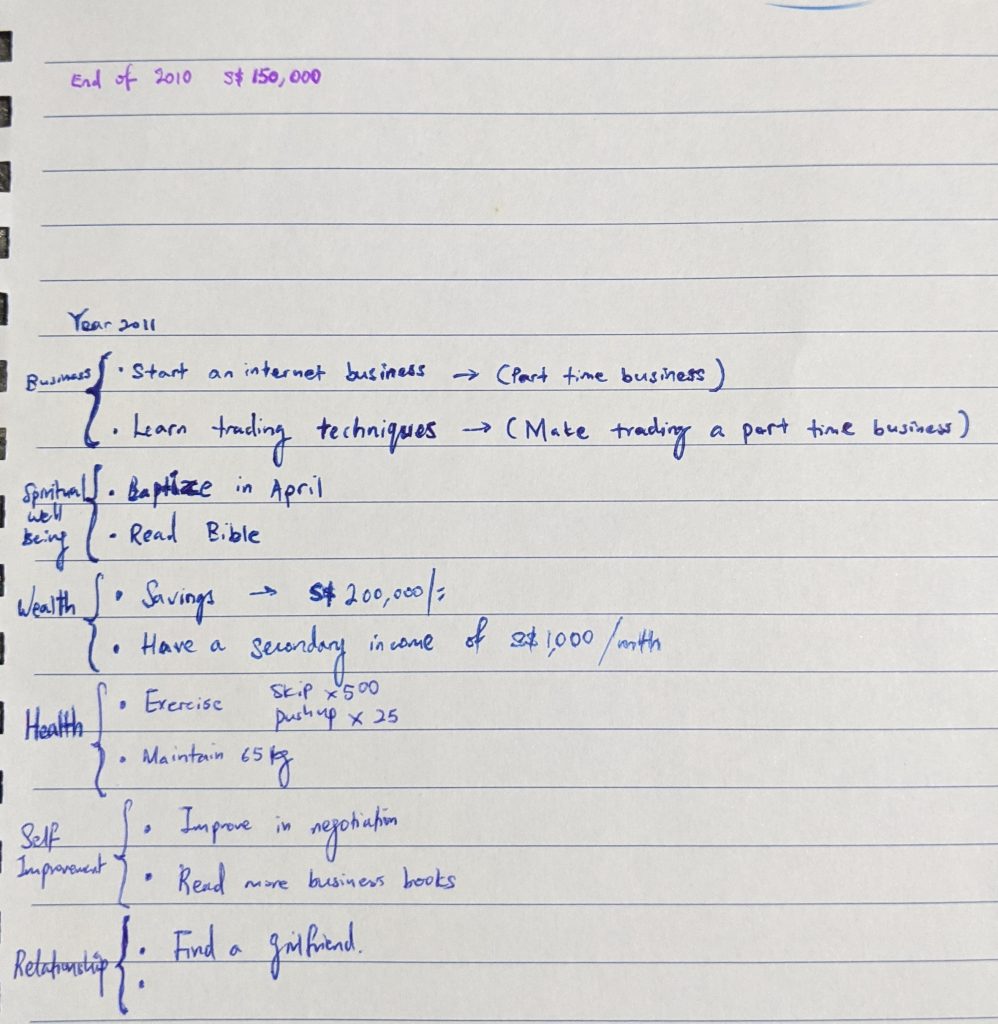 End of 2010 S$ 150,000
Year 2011
Business
• Start an internet business → (Part time business)
• Learn trading techniques → (Make trading a part time business)
Spiritual well being
• Baptize in April
• Read Bible
Wealth
• Savings → S$ 200,000/=
• Have a secondary income of S$ 1,000 /mth
Health
• Exercise skip x 500
pushup x 25
• Maintain 65 kg
Self Improvement
• Improve in negotiation
• Read more business books
Relationship
• Find a girlfriend.
•